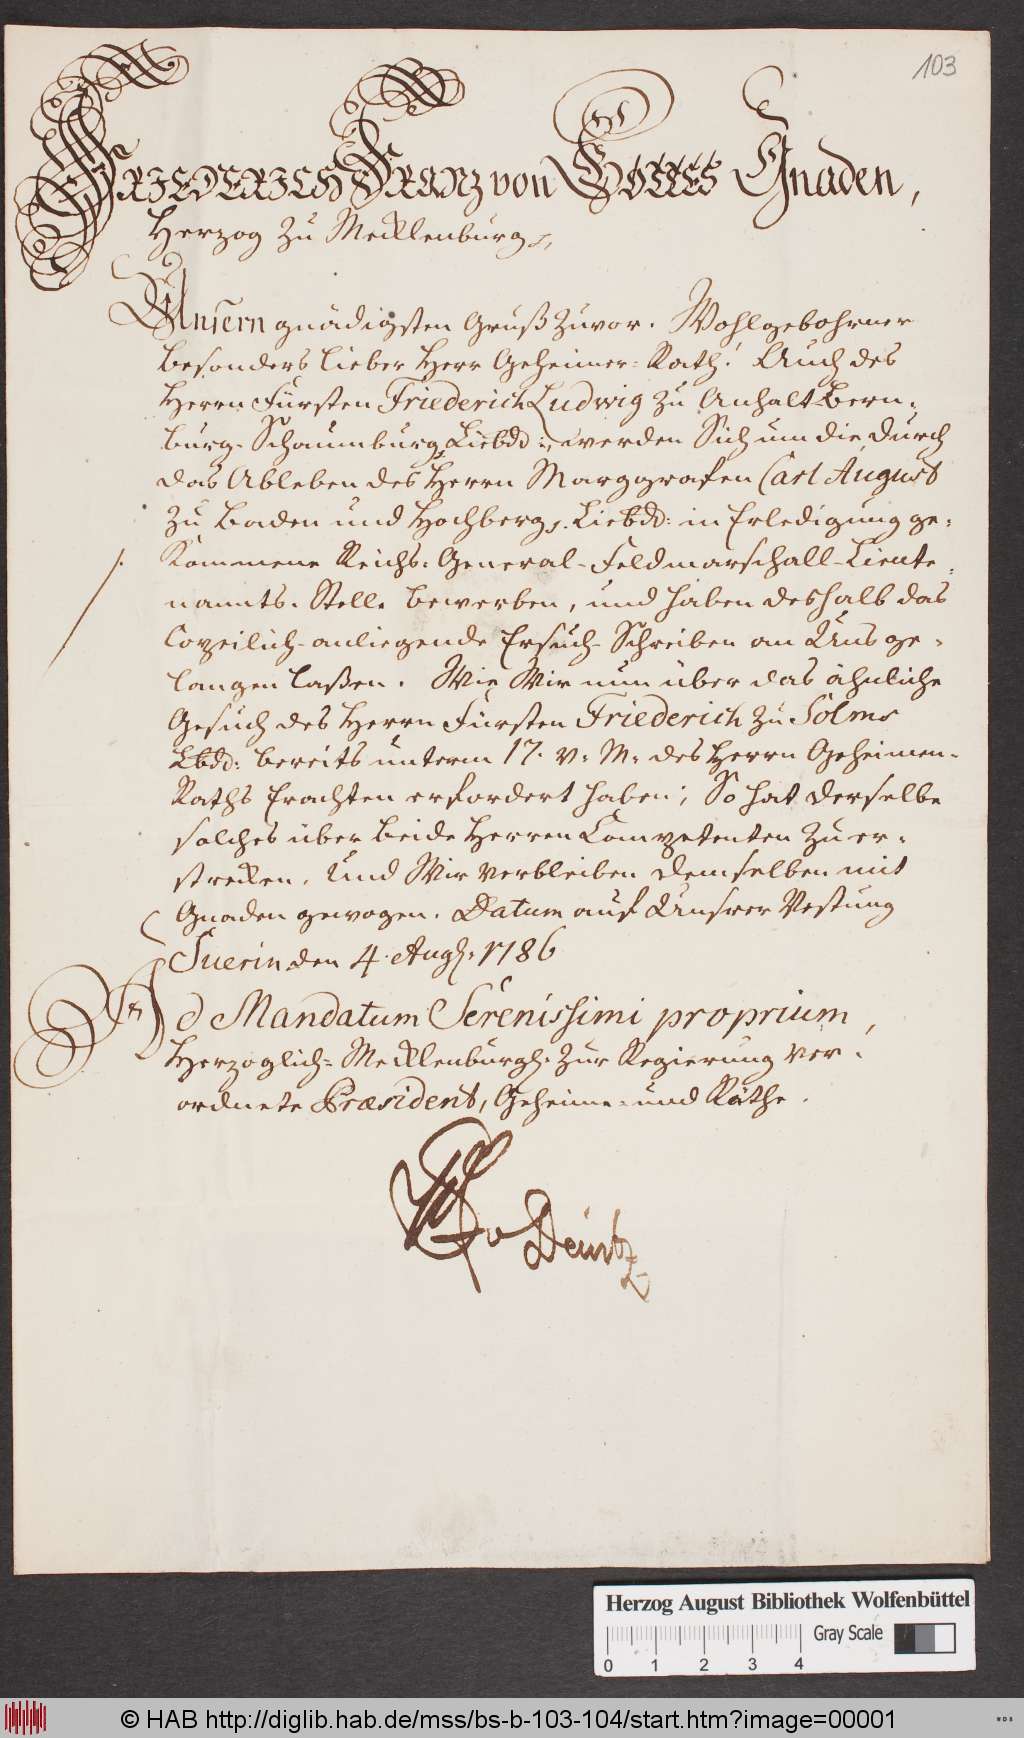 103
FRIEDERICH FRANZ von GOTTES Gnaden,
Herzog zu Mecklenburg
Unsern gnädigsten Gruß zuvor. Wohlgebohrner
besonders lieber Herr Geheimer-Rath! Auch des
Herrn Fürsten Friederich Ludwig zu Anhalt-Bern-
burg-Schaumburg Liebdd: werden Sich um die durch
das Ableben des Herrn Marggrafen Carl August
zu Baden und Hochberg Liebdd: in Erledigung ge-
kommene Reichs-General-Feldmarschall-Lieute-
nannts-Stelle bewerben, und haben deshalb das
copeilich-anliegende Ersuch-Schreiben an Uns ge-
langen laßen. Wie Wir nun über das ähnliche
Gesuch des Herrn Fürsten Friederich zu Solms
Lbdd: bereits unterm 17. v. M. des Herrn Geheimen-
Raths Erachten erfordert haben; So hat derselbe
solches über beide Herren Competenten zu er-
strecken. Und Wir verbleiben demselben mit
Gnaden gewogen. Datum auf Unsrer Vestung
Suerin den 4. Aug. 1786
Ad Mandatum Serenissimi proprium,
Herzoglich-Mecklenburgh. zur Regierung ver-
ordnete Præsident, Geheime- und Räthe.
v Dewitz
Herzog August Bibliothek Wolfenbüttel
Gray Scale
0 1 2 3 4
© HAB http://diglib.hab.de/mss/bs-b-103-104/start.htm?image=00001